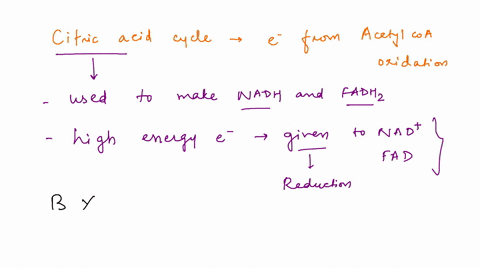 Citric acid cycle → e⁻ from Acetyl coA
oxidation
- used to make NADH and FADH₂
- high energy e⁻ → given to NAD⁺
FAD
Reduction
B Y